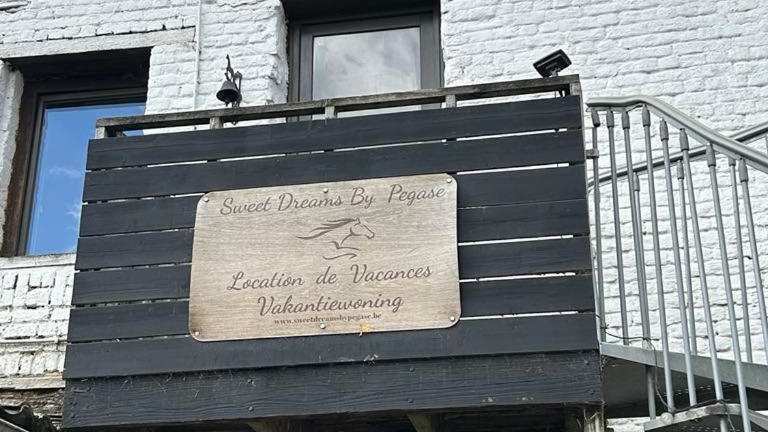 Sweet Dreams By Pegase
Location de Vacances
Vakantiewoning
www.sweetdreamsbypegase.be